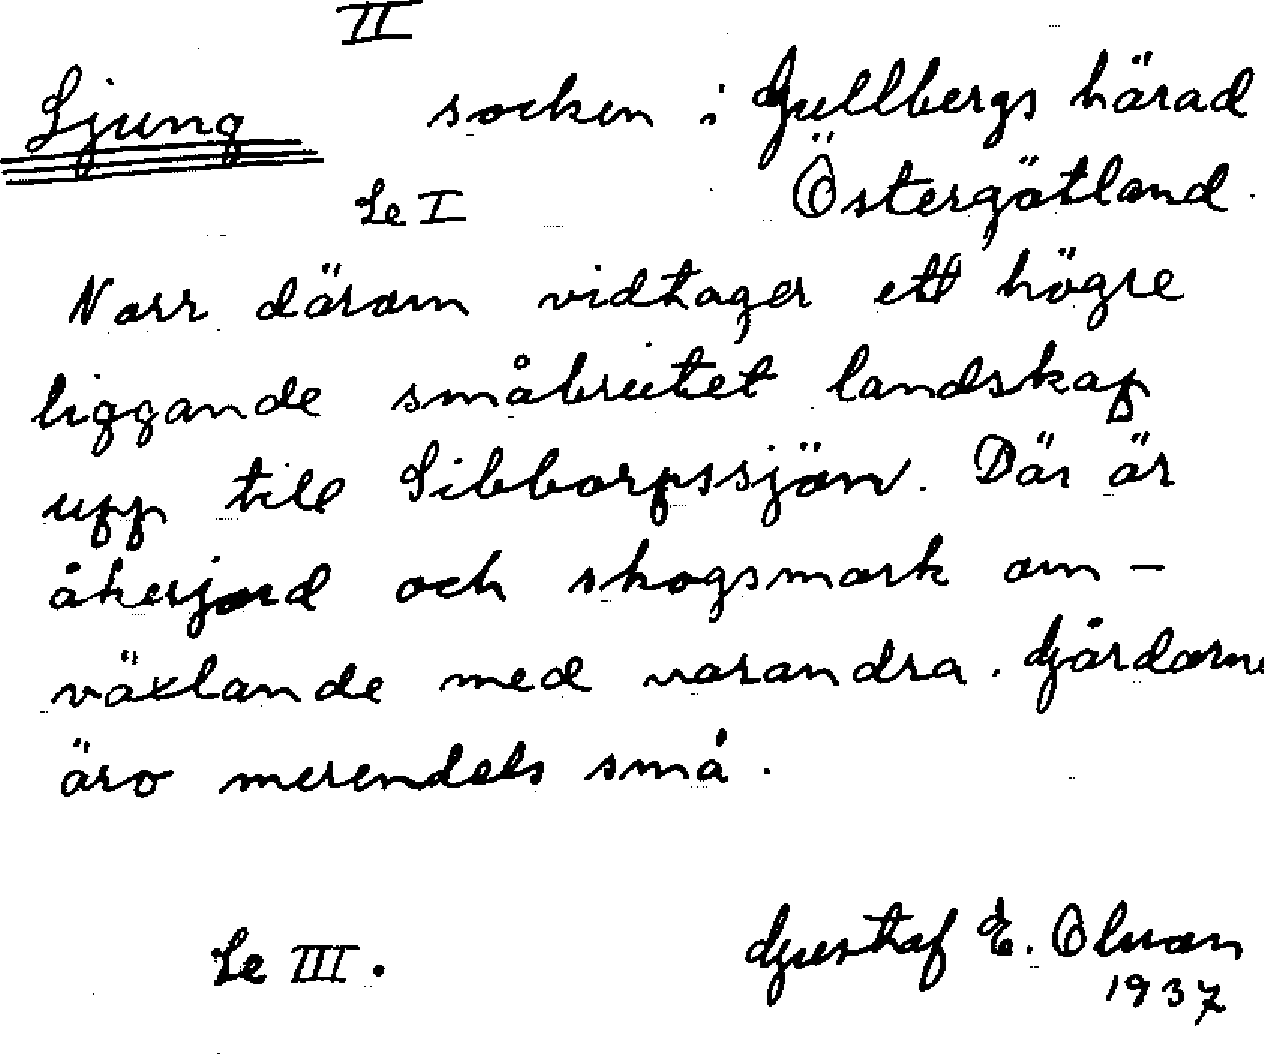 II
Ljung socken i Gullbergs härad
Se I Östergötland.
Norr därom vidtager ett högre
liggande småbrutet landskap
upp till Sibborpssjön. Där är
åkerjord och skogsmark om-
växlande med varandra. Gärdarne
äro merendels små.
Se III. Gustaf E. Olsson
1937